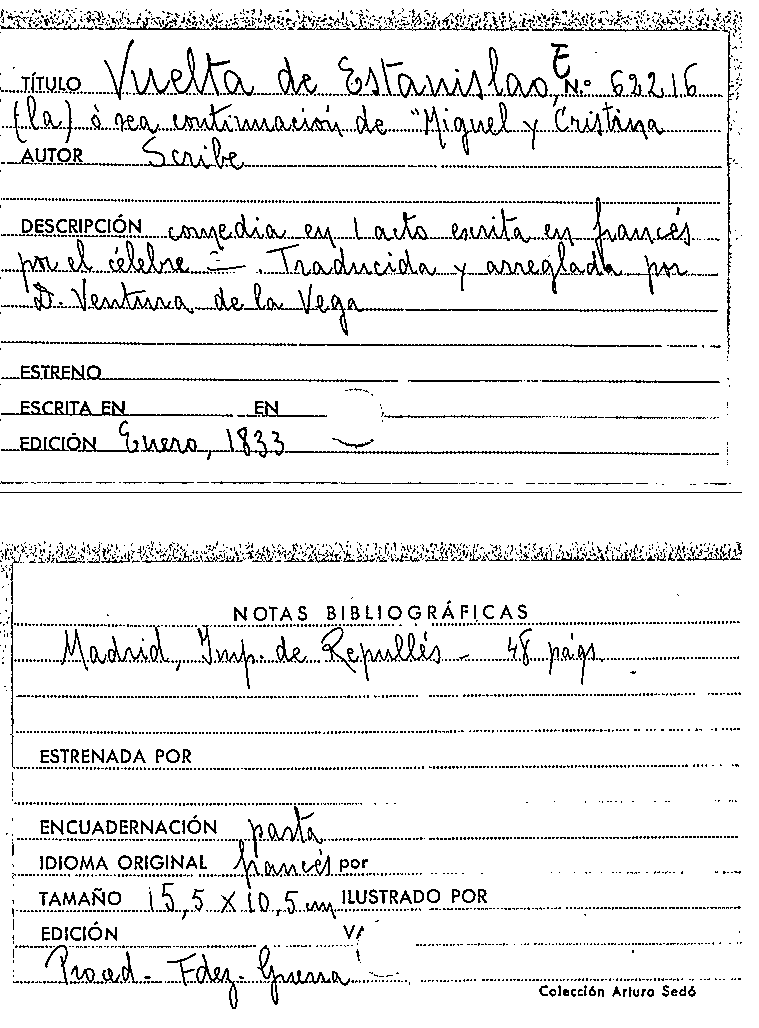 TÍTULO Vuelta de Estanislao, E N.º 62216
(la) ò sea continuación de "Miguel y Cristina
AUTOR Scribe
DESCRIPCIÓN comedia en 1 acto escrita en francés
por el célebre = . Traducida y arreglada por
D. Ventura de la Vega
ESTRENO
ESCRITA EN EN
EDICIÓN Enero, 1833
NOTAS BIBLIOGRÁFICAS
Madrid, Imp. de Repullés - 48 págs.
ESTRENADA POR
ENCUADERNACIÓN pasta
IDIOMA ORIGINAL francés por
TAMAÑO 15,5 X 10,5 cm ILUSTRADO POR
EDICIÓN
Proced. Fdez. Guerra
Colección Arturo Sedó